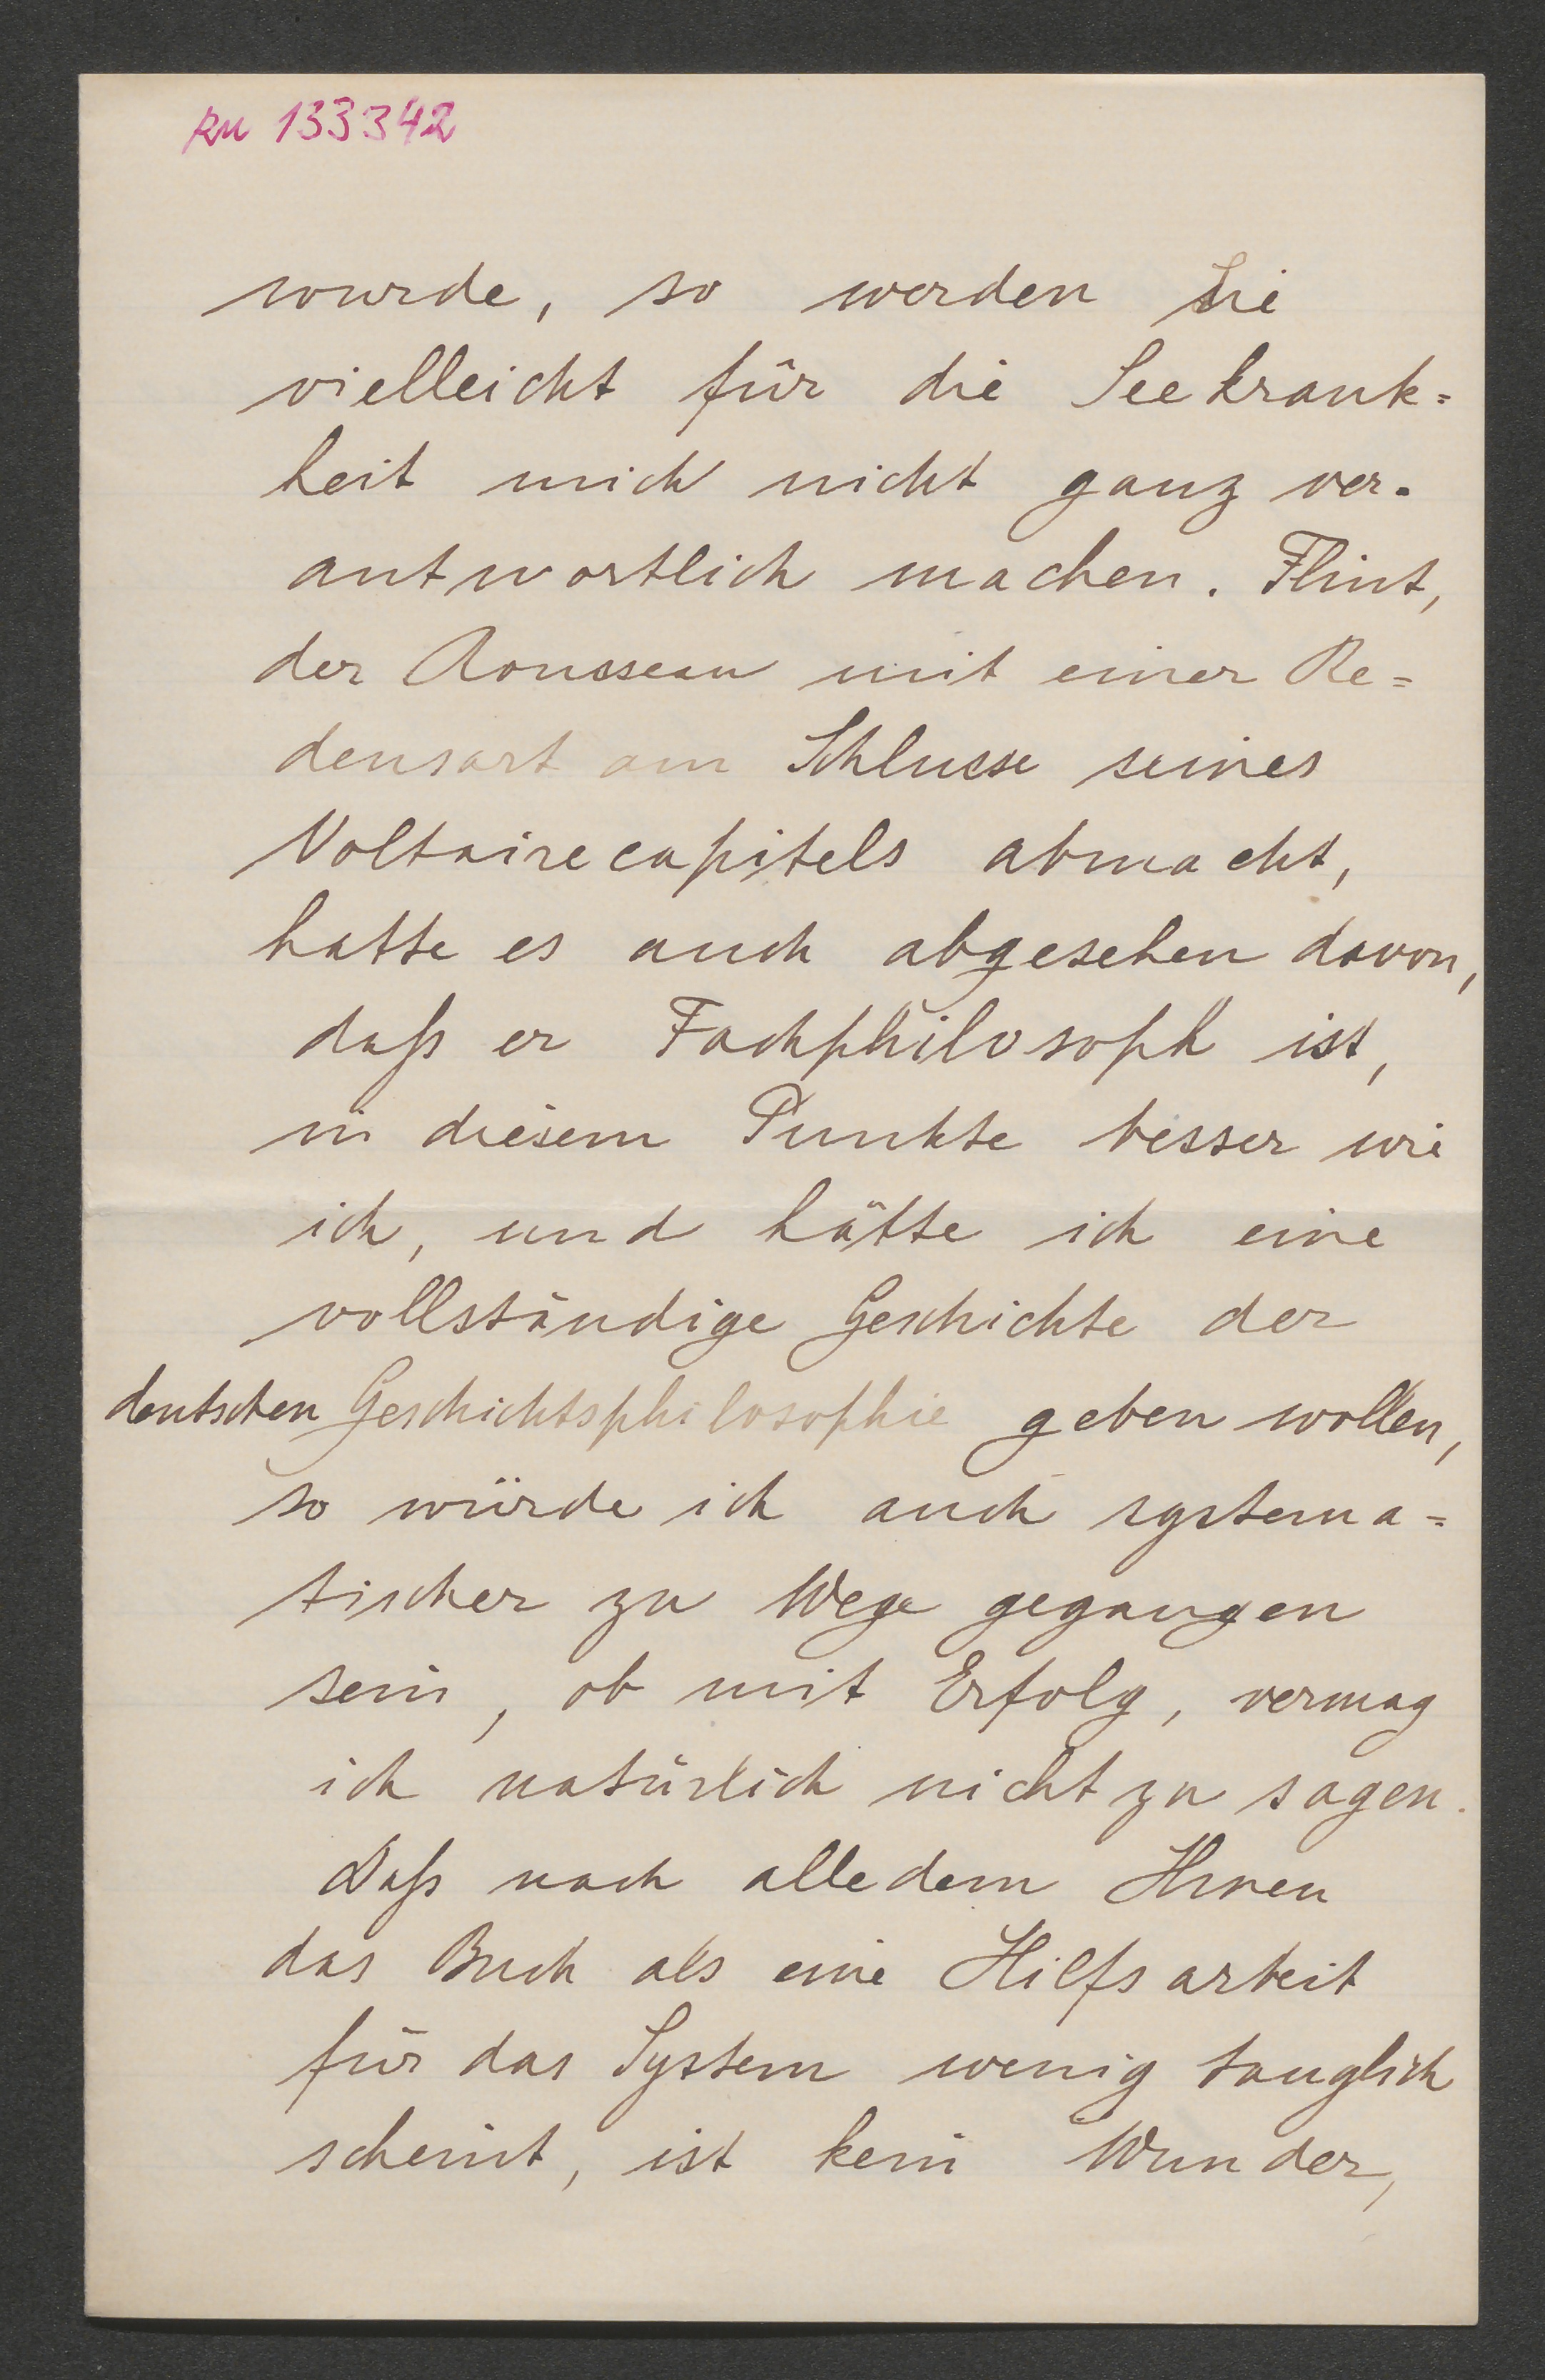 zu 133342
wurde, so werden Sie
vielleicht für die Seekrank=
heit mich nicht ganz ver-
antwortlich machen. Flint,
der Rousseau mit einer Re=
densart am Schlusse seines
Voltairecapitels abmacht,
hatte es auch abgesehen davon,
daß er Fachphilosoph ist,
in diesem Punkte besser wie
ich, und hätte ich eine
vollständige Geschichte der
deutschen Geschichtsphilosophie geben wollen,
so würde ich auch systema=
tischer zu Wege gegangen
sein, ob mit Erfolg, vermag
ich natürlich nicht zu sagen.
Daß nach alledem Ihnen
das Buch als eine Hilfsarbeit
für das System wenig tauglich
scheint, ist kein Wunder,